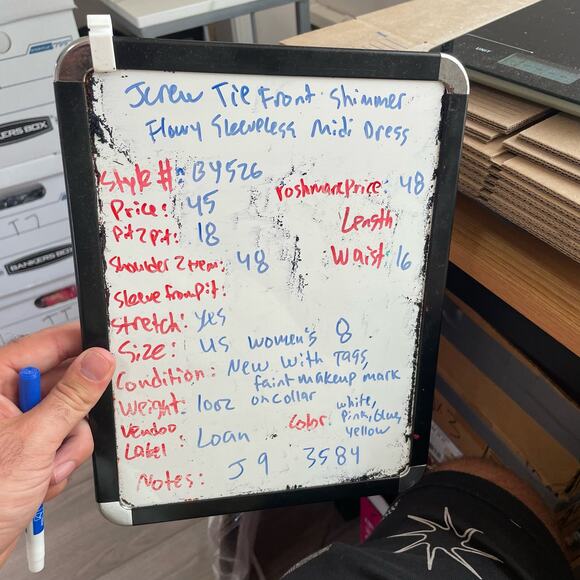 Jcrew Tie Front Shimmer
Flowy Sleeveless Midi Dress
Style #: BY526
Poshmark Price: 48
Price: 45
Length
Pit 2 Pit: 18
Waist: 16
Shoulder 2 Hem: 48
Sleeve from Pit:
Stretch: Yes
Size: US Women's 8
Condition: New With Tags,
faint makeup mark
on collar
Weight: 10oz
Color: white,
pink, blue,
yellow
Vendoo
Label: Loan
Notes: J9 3584
BANKERS BOX
UNIT